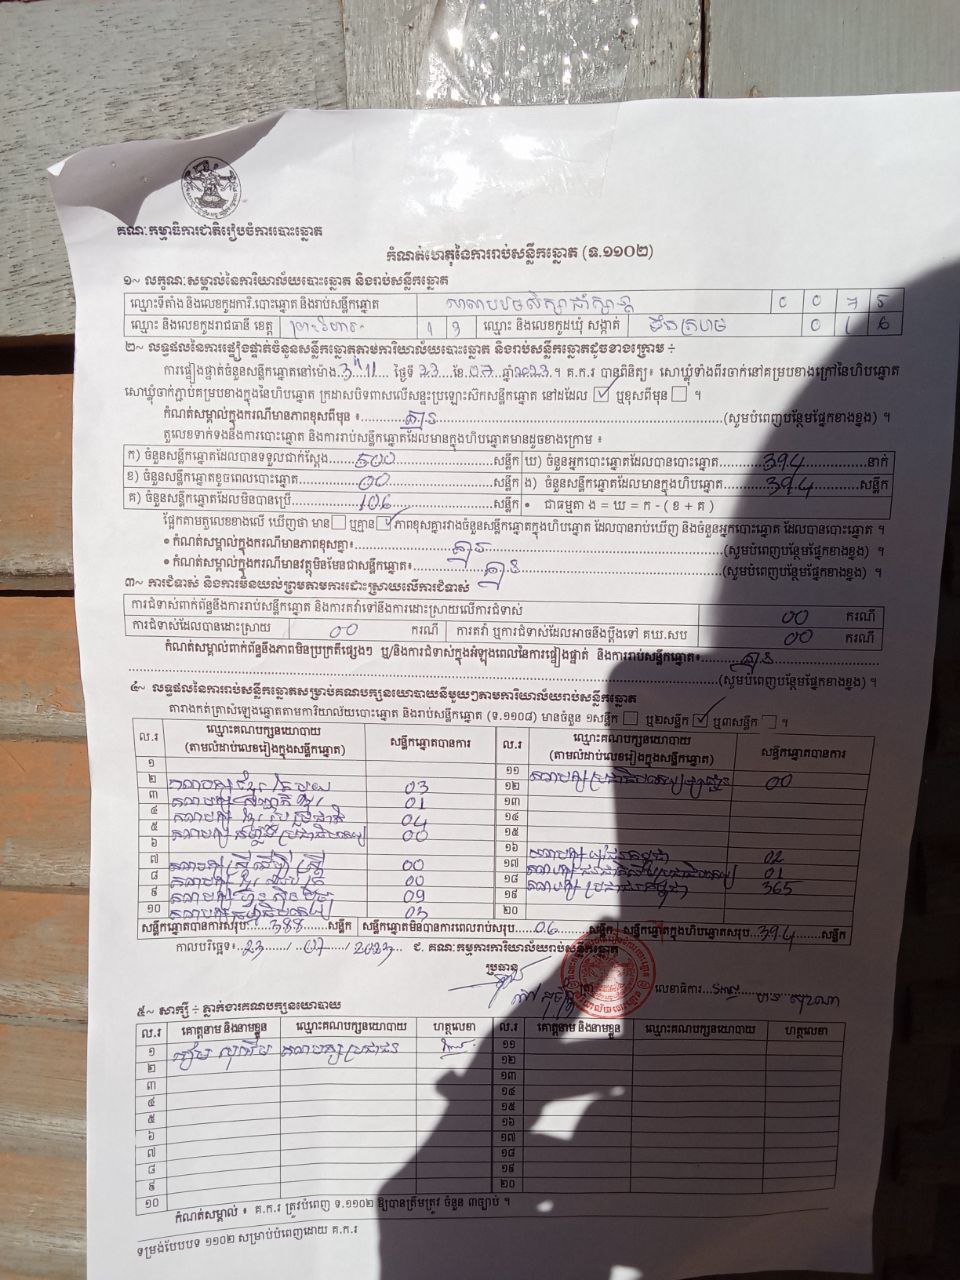 គណៈកម្មាធិការជាតិរៀបចំការបោះឆ្នោត
កំណត់ហេតុនៃការរាប់សន្លឹកឆ្នោត (ទ.១១០២)
១~ លក្ខណៈសម្គាល់នៃការិយាល័យបោះឆ្នោត និងរាប់សន្លឹកឆ្នោត
ឈ្មោះទីតាំង និងលេខកូដការិ.បោះឆ្នោត និងរាប់សន្លឹកឆ្នោត
ឈ្មោះ និងលេខកូដរាជធានី ខេត្ត ព្រះវិហារ 1 3 ឈ្មោះ និងលេខកូដឃុំ សង្កាត់
២~ លទ្ធផលនៃការផ្ទៀងផ្ទាត់ចំនួនសន្លឹកឆ្នោតតាមការិយាល័យបោះឆ្នោត និងរាប់សន្លឹកឆ្នោតដូចខាងក្រោម ÷
ការផ្ទៀងផ្ទាត់ចំនួនសន្លឹកឆ្នោតនៅម៉ោង 3 11 ថ្ងៃទី 23 ខែ 07 ឆ្នាំ 2023 ។ គ.ក.រ បានពិនិត្យ៖ សោឃ្មុំទាំងពីរចាក់នៅគម្របខាងក្រៅនៃហិបឆ្នោត
សោឃ្មុំចាក់ភ្ជាប់គម្របខាងក្នុងនៃហិបឆ្នោត ក្រដាសបិទពាសលើសន្ទះប្រឡោះស៊កសន្លឹកឆ្នោត នៅដដែល ☑ ឬខុសពីមុន ☐ ។
កំណត់សម្គាល់ក្នុងករណីមានភាពខុសពីមុន ៖ គ្មាន (សូមបំពេញបន្ថែមផ្នែកខាងខ្នង) ។
តួលេខទាក់ទងនឹងការបោះឆ្នោត និងការរាប់សន្លឹកឆ្នោតដែលមានក្នុងហិបឆ្នោតមានដូចខាងក្រោម ៖
ក) ចំនួនសន្លឹកឆ្នោតដែលបានទទួលជាក់ស្តែង 500 សន្លឹក ឃ) ចំនួនអ្នកបោះឆ្នោតដែលបានបោះឆ្នោត 394 នាក់
ខ) ចំនួនសន្លឹកឆ្នោតខូចពេលបោះឆ្នោត 00 សន្លឹក ង) ចំនួនសន្លឹកឆ្នោតដែលមានក្នុងហិបឆ្នោត 394 សន្លឹក
គ) ចំនួនសន្លឹកឆ្នោតដែលមិនបានប្រើ 106 សន្លឹក • ជាធម្មតា ង = ឃ = ក - ( ខ + គ )
ផ្អែកតាមតួលេខខាងលើ ឃើញថា មាន ☐ ឬគ្មាន ☑ ភាពខុសគ្នារវាងចំនួនសន្លឹកឆ្នោតក្នុងហិបឆ្នោត ដែលបានរាប់ឃើញ និងចំនួនអ្នកបោះឆ្នោត ដែលបានបោះឆ្នោត ។
• កំណត់សម្គាល់ក្នុងករណីមានភាពខុសគ្នា៖ គ្មាន (សូមបំពេញបន្ថែមផ្នែកខាងខ្នង) ។
• កំណត់សម្គាល់ក្នុងករណីមានវត្ថុមិនមែនជាសន្លឹកឆ្នោត៖ គ្មាន (សូមបំពេញបន្ថែមផ្នែកខាងខ្នង) ។
៣~ ការជំទាស់ និងការមិនយល់ព្រមតាមការដោះស្រាយលើការជំទាស់
ការជំទាស់ពាក់ព័ន្ធនឹងការរាប់សន្លឹកឆ្នោត និងការតវ៉ាទៅនឹងការដោះស្រាយលើការជំទាស់ 00 ករណី
ការជំទាស់ដែលបានដោះស្រាយ 00 ករណី ការតវ៉ា ឬការជំទាស់ដែលអាចនឹងប្តឹងទៅ គឃ.សប 00 ករណី
កំណត់សម្គាល់ពាក់ព័ន្ធនឹងភាពមិនប្រក្រតីផ្សេងៗ ឬ/និងការជំទាស់ក្នុងអំឡុងពេលនៃការផ្ទៀងផ្ទាត់ និងការរាប់សន្លឹកឆ្នោត៖ គ្មាន
(សូមបំពេញបន្ថែមផ្នែកខាងខ្នង) ។
៤~ លទ្ធផលនៃការរាប់សន្លឹកឆ្នោតសម្រាប់គណបក្សនយោបាយនីមួយៗតាមការិយាល័យរាប់សន្លឹកឆ្នោត
តារាងកត់ត្រាសំឡេងឆ្នោតតាមការិយាល័យបោះឆ្នោត និងរាប់សន្លឹកឆ្នោត (ទ.១១០៨) មានចំនួន ១សន្លឹក ☐ ឬ២សន្លឹក ☑ ឬ៣សន្លឹក ☐ ។
ល.រ ឈ្មោះគណបក្សនយោបាយ (តាមលំដាប់លេខរៀងក្នុងសន្លឹកឆ្នោត) សន្លឹកឆ្នោតបានការ ល.រ ឈ្មោះគណបក្សនយោបាយ (តាមលំដាប់លេខរៀងក្នុងសន្លឹកឆ្នោត) សន្លឹកឆ្នោតបានការ
១ ១១ 00
២ 03 ១២
៣ 01 ១៣
៤ 04 ១៤
៥ 00 ១៥
៦ ១៦ 02
៧ គណបក្សស្ត្រីដើម្បីស្ត្រី 00 ១៧ 01
៨ 00 ១៨ គណបក្សប្រជាជនកម្ពុជា 365
៩ គណបក្សហ្វ៊ុនស៊ិនប៉ិច 09 ១៩
១០ 03 ២០
សន្លឹកឆ្នោតបានការសរុប 388 សន្លឹក សន្លឹកឆ្នោតមិនបានការពេលរាប់សរុប 06 សន្លឹក សន្លឹកឆ្នោតក្នុងហិបឆ្នោតសរុប 394 សន្លឹក
កាលបរិច្ឆេទ៖ 23 / 07 / 2023 ជ. គណៈកម្មការការិយាល័យរាប់សន្លឹកឆ្នោត
ប្រធាន
លេខាធិការ
៥~ សាក្សី ÷ ភ្នាក់ងារគណបក្សនយោបាយ
ល.រ គោត្តនាម និងនាមខ្លួន ឈ្មោះគណបក្សនយោបាយ ហត្ថលេខា ល.រ គោត្តនាម និងនាមខ្លួន ឈ្មោះគណបក្សនយោបាយ ហត្ថលេខា
១ គណបក្សប្រជាជន ១១
២ ១២
៣ ១៣
៤ ១៤
៥ ១៥
៦ ១៦
៧ ១៧
៨ ១៨
៩ ១៩
១០ ២០
កំណត់សម្គាល់ ៖ គ.ក.រ ត្រូវបំពេញ ទ.១១០២ ឱ្យបានត្រឹមត្រូវ ចំនួន ៣ច្បាប់ ។
ទម្រង់បែបបទ ១១០២ សម្រាប់បំពេញដោយ គ.ក.រ